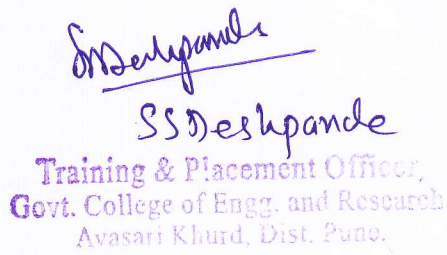 SSDeshpande
SSDeshpande
Training & Placement Officer,
Govt. College of Engg. and Research
Avasari Khurd, Dist. Pune.